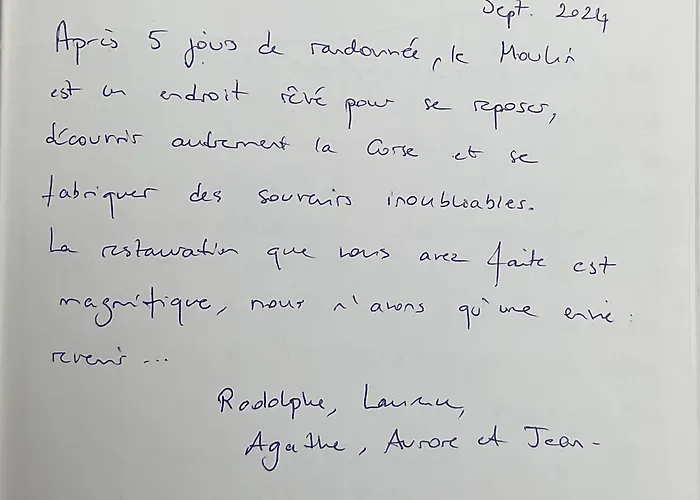 Sept. 2024
Après 5 jours de randonnée, le Moulin
est un endroit rêvé pour se reposer,
découvrir autrement la Corse et se
fabriquer des souvenirs inoubliables.
La restauration que vous avez faite est
magnifique, nous n'avons qu'une envie :
revenir ...
Rodolphe,
Agathe, Aurore et Jean-